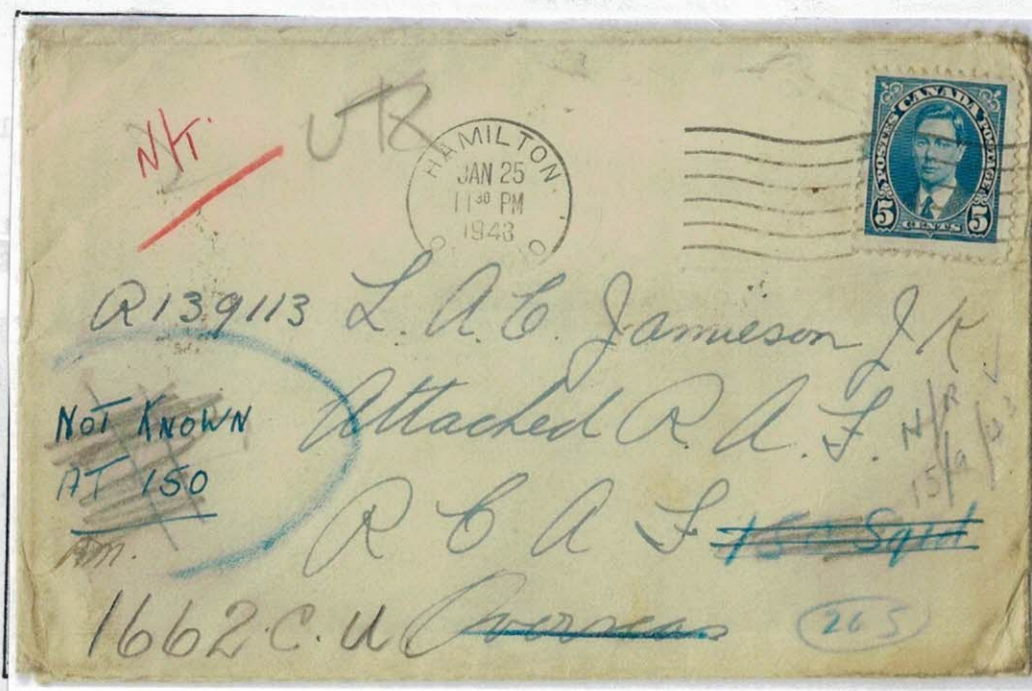 N/T.
HAMILTON
JAN 25
11 30 PM
1943
POSTES CANADA POSTAGE
5 CENTS 5
R139113 L. A. C. Jamieson J K
Attached R. A. F.
N/R
15/9/43
NOT KNOWN
AT 150
R C A F 150 Sqd
1662. C. U Overseas
265